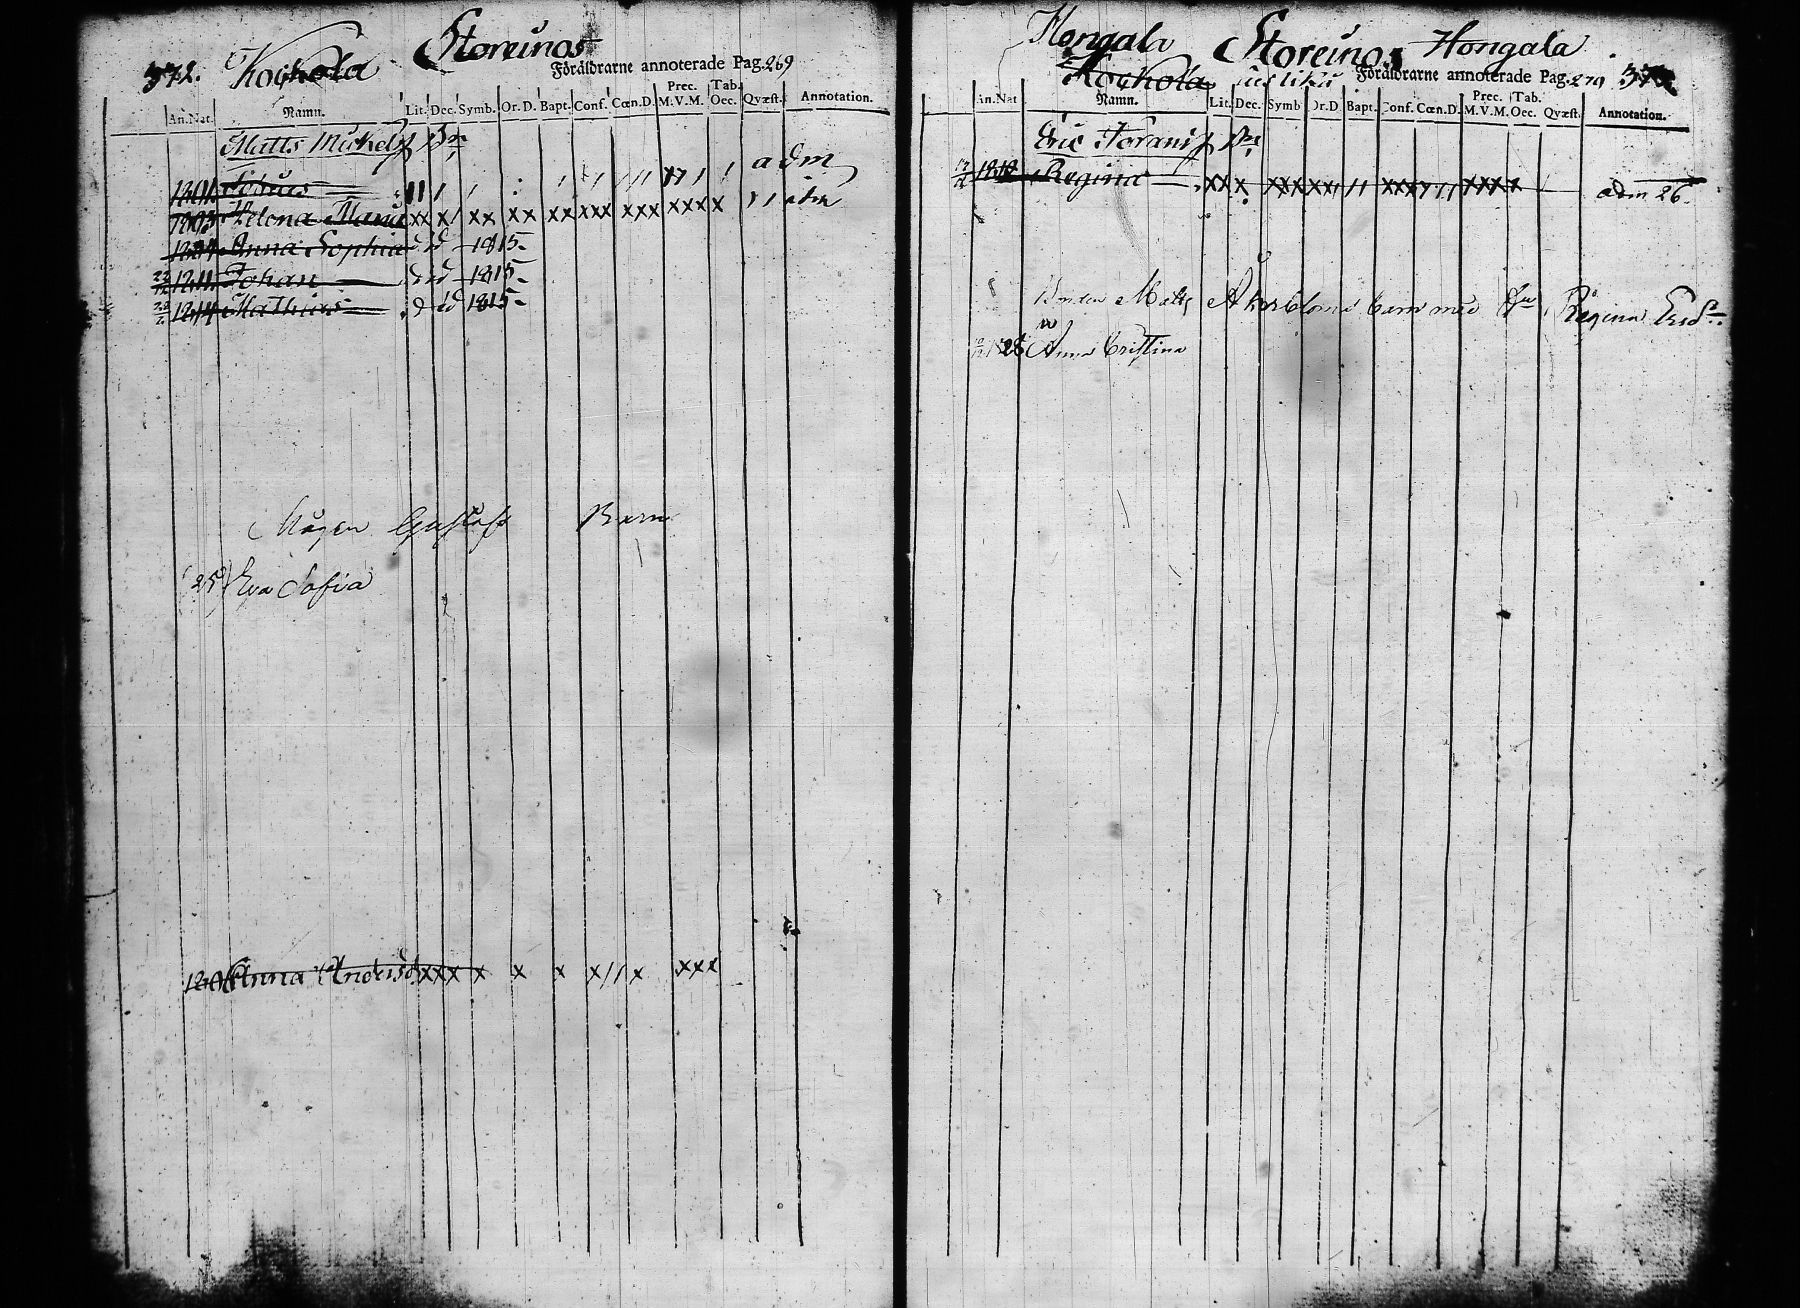 372. Kockola Storeinos
Föräldrarne annoterade Pag. 269
An. Nat. Namn. Lit. Dec. Symb. Or. D. Bapt. Conf. Cœn. D. Prec. M. V. M. Tab. Oec. Qvæst. Annotation.
Matts Mickels Bn
1801 adm
Helena Maria xx x / xx xx xx xxx xxx xxxx x
Anna Sophia död 1815.
1811 Johan död 1815.
1814 Mathias död 1815.
Mågen Gustafs Barn
25 Eva Sofia
Anna Andersd. xxx x x x x // x xxx
Hongala Storeinos Hongala
Kockola
Föräldrarne annoterade Pag. 270 373.
An. Nat. Namn. Lit. Dec. Symb. Or. D. Bapt. Conf. Cœn. D. Prec. M. V. M. Tab. Oec. Qvæst. Annotation.
Eric Bn
Regina adm 26.
Bonden Matts Åkerbloms barn med Regina Ersd.
28 Anna Cristina